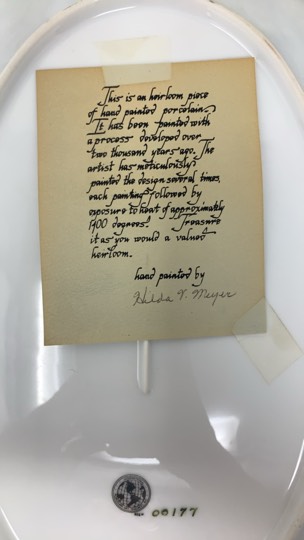 This is an heirloom piece
of hand painted porcelain.
It has been painted with
a process developed over
two thousand years ago. The
artist has meticulously
painted the design several times,
each painting followed by
exposure to heat of approximately
1900 degrees. Treasure
it as you would a valued
heirloom.
hand painted by
Hilda V. Meyer
00177